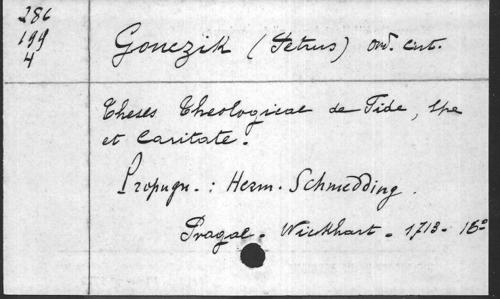 286
199
4
Gonezik (Petrus) ord. cist.
Theses Theologicae de Fide, spe
et Caritate.
Propugn. : Herm. Schmedding.
Pragae. Wickhart. 1713. 16°